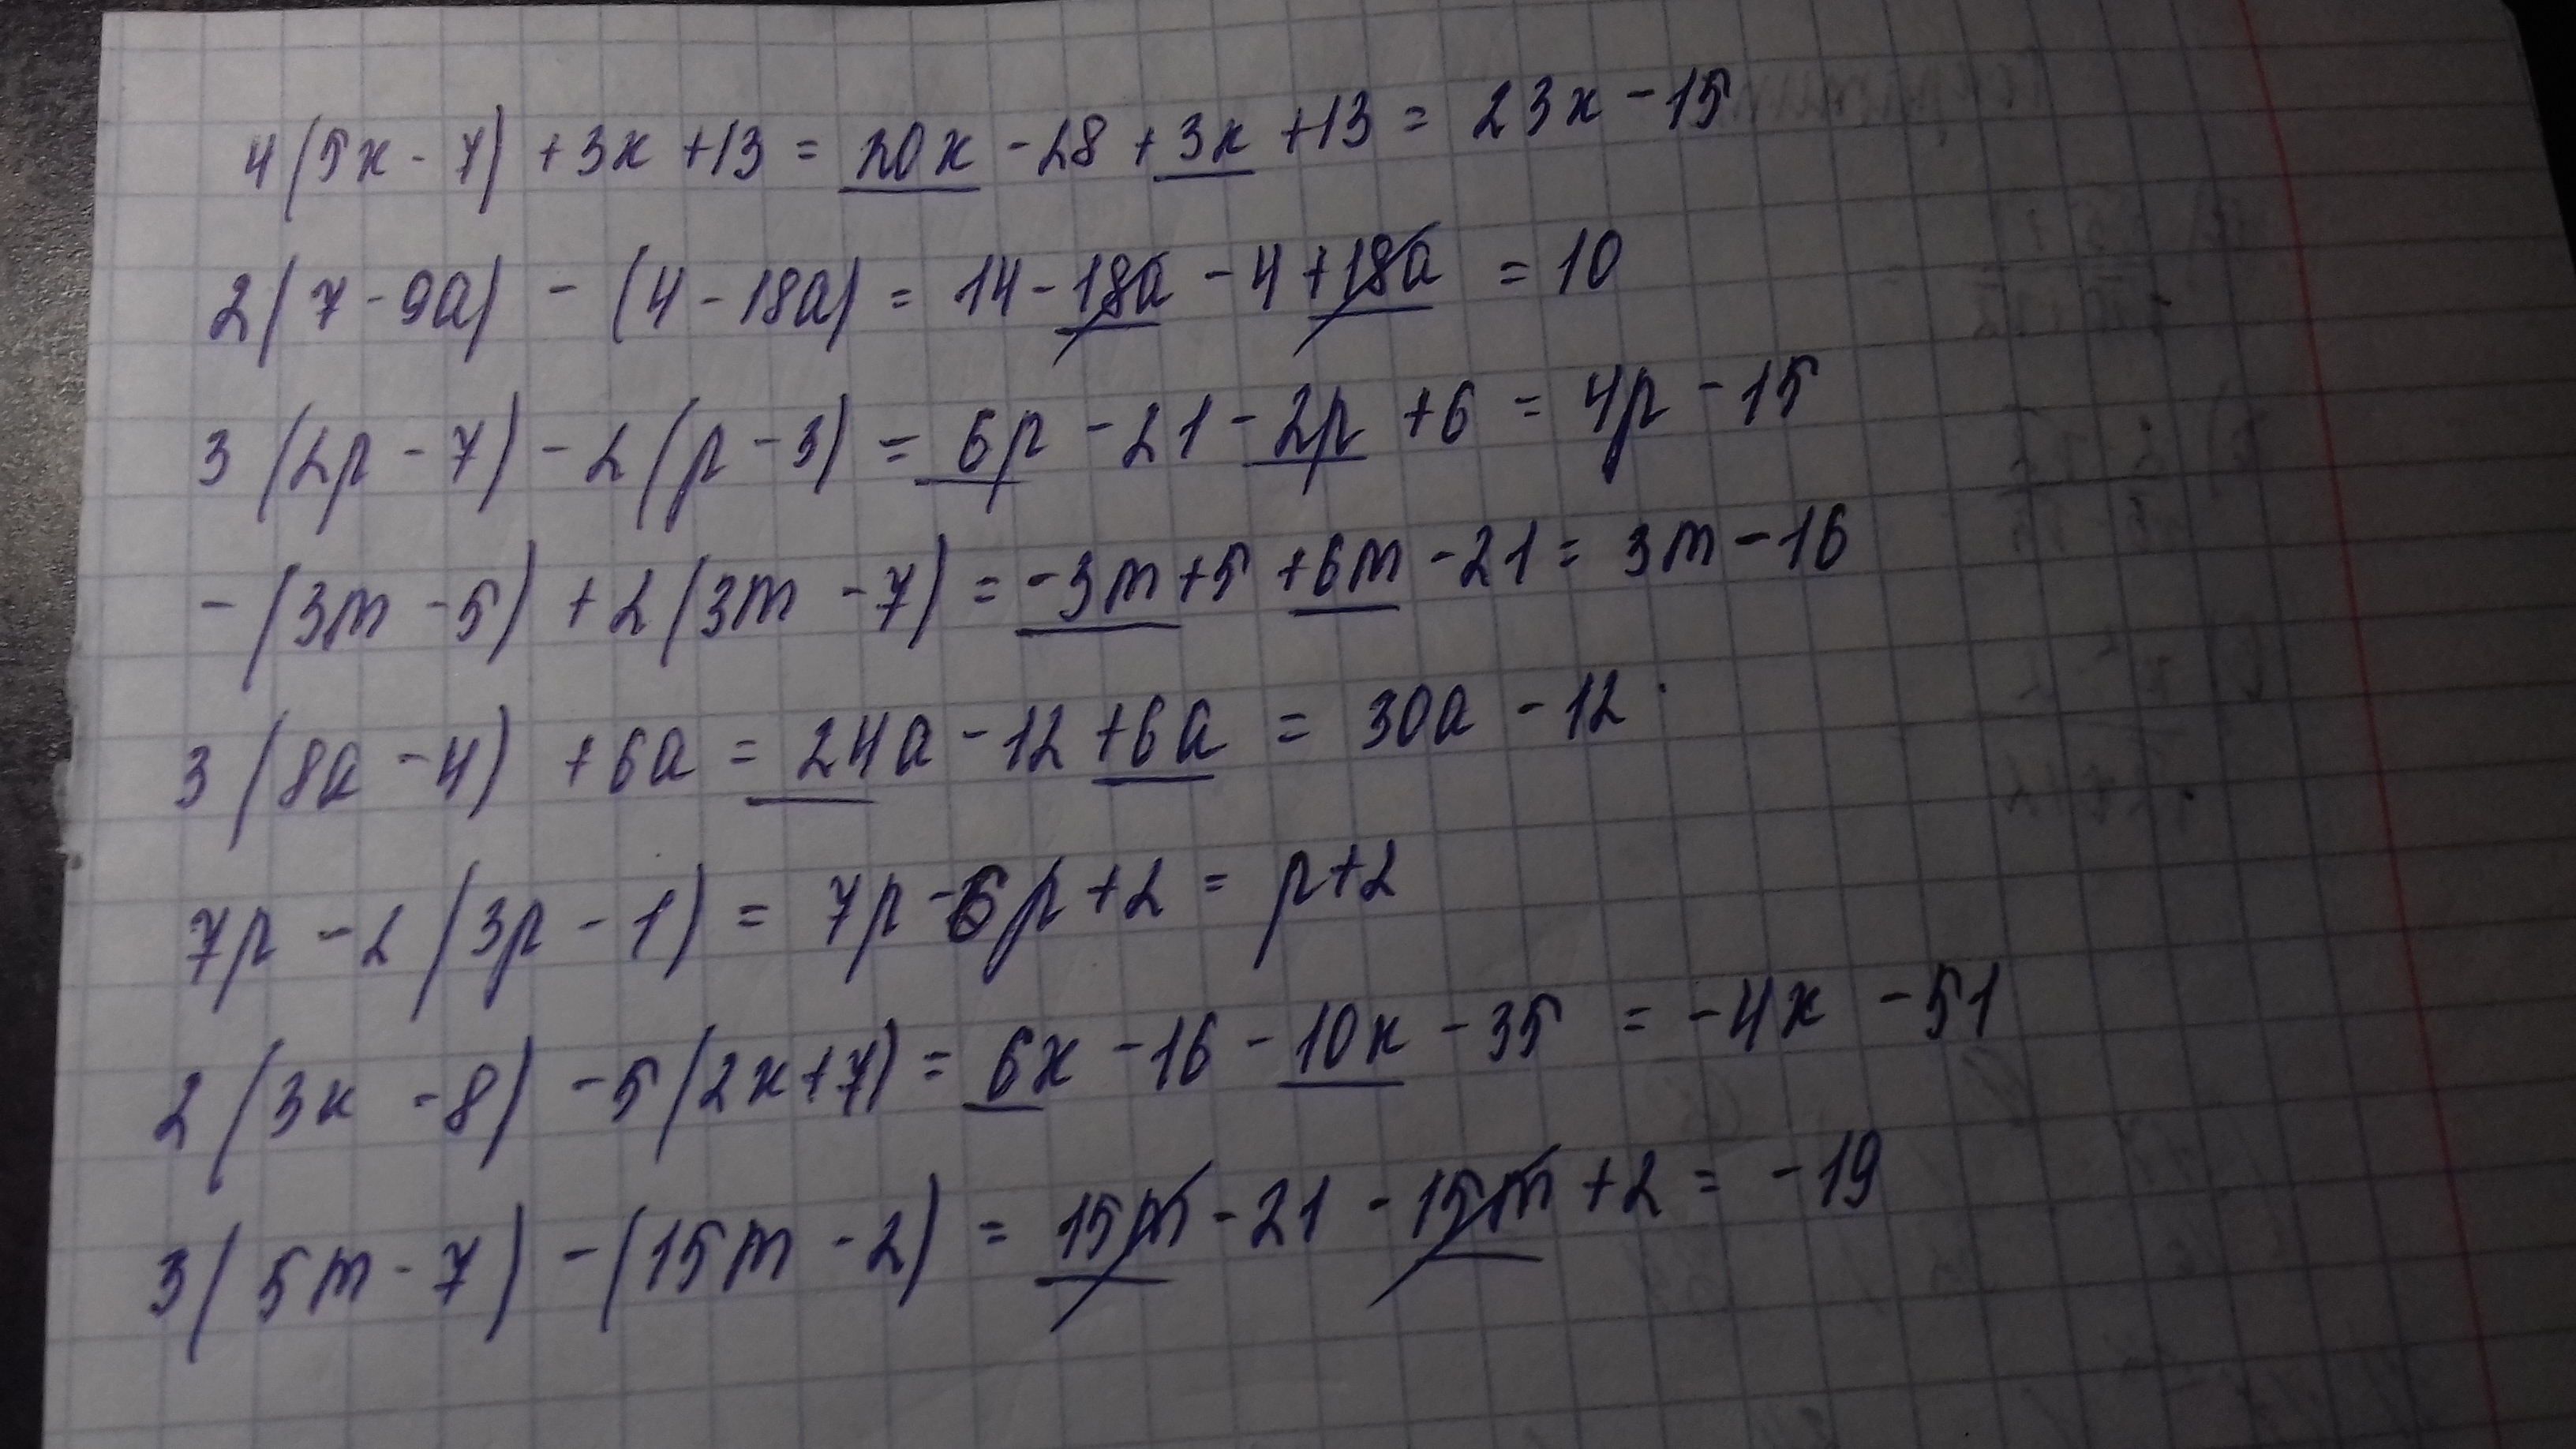 4(5x - 7) + 3x + 13 = 20x - 28 + 3x + 13 = 23x - 15
2(7 - 9a) - (4 - 18a) = 14 - 18a - 4 + 18a = 10
3(2p - 7) - 2(p - 3) = 6p - 21 - 2p + 6 = 4p - 15
-(3m - 5) + 2(3m - 7) = -3m + 5 + 6m - 21 = 3m - 16
3(8a - 4) + 6a = 24a - 12 + 6a = 30a - 12
7p - 2(3p - 1) = 7p - 6p + 2 = p + 2
2(3x - 8) - 5(2x + 7) = 6x - 16 - 10x - 35 = -4x - 51
3(5m - 7) - (15m - 2) = 15m - 21 - 15m + 2 = -19